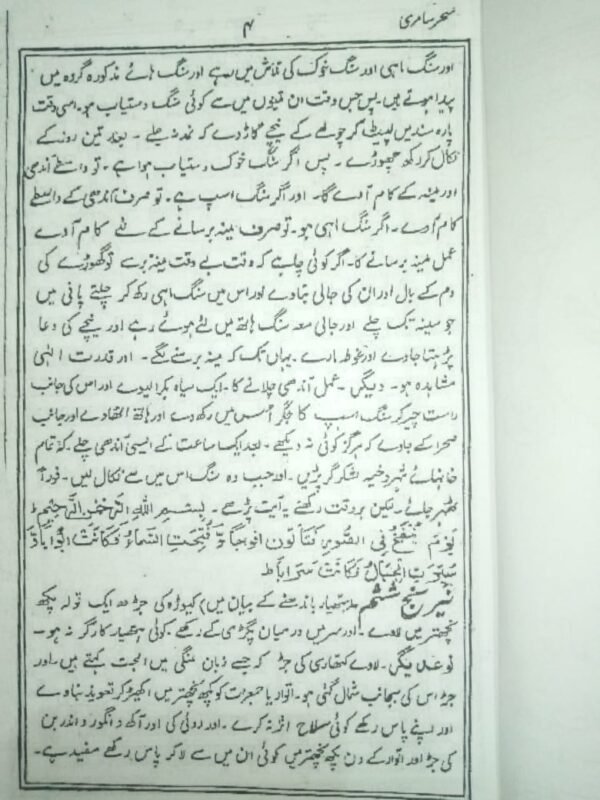 سحر سامری
۴
اور سنگ ماہی اور سنگ خوک کی تلاش میں رہے اور سنگ ہائے مذکورہ گردہ میں
پیدا ہوتے ہیں۔ پس جس وقت ان تینوں میں سے کوئی سنگ دستیاب ہو۔ اسی وقت
پارہ سند میں لپیٹ کر چولہے کے نیچے گاڑ دے کہ نمدہ جلے۔ بعد تین روز کے
نکال کر رکھ چھوڑے۔ پس اگر سنگ خوک دستیاب ہوا ہے۔ تو واسطے آندھی
اور مینہ کے کام آوے گا۔ اور اگر سنگ اسپ ہے۔ تو صرف آندھی کے واسطے
کام آوے۔ اگر سنگ ماہی ہو۔ تو صرف مینہ برسانے کے لئے کام آوے
عمل مینہ برسانے کا۔ اگر کوئی چاہے کہ وقت بے وقت مینہ برسے تو گھوڑے کی
دم کے بال اور ان کی جالی بناوے اور اس میں سنگ ماہی رکھ کر چلتے پانی میں
جو سینہ تک چلے اور جالی معہ سنگ ہاتھ میں لئے ہوئے رہے اور نیچے کی دعا
پڑہتا جاوے اور غوطہ مارے۔ یہاں تک کہ مینہ برسنے لگے۔ اور قدرت الٰہی
مشاہدہ ہو۔ دیگر۔ عمل آندھی چلانے کا۔ ایک سیاہ بکرا لیوے اور اس کی جانب
راست چیر کر سنگ اسپ کا جگر اس میں رکھ دے اور ہاتھ اٹھا دے اور جانب
صحرا کے جاوے کہ ہرگز کوئی نہ دیکھے۔ بعد ایک ساعت کے ایسی آندھی چلے۔ کہ تمام
خانہائے شہر و خیمہ لشکر گر پڑیں۔ اور جب وہ سنگ اس میں سے نکال لیں۔ فوراً
ٹھہر جائے۔ لیکن بروقت رکھنے یہ آیت پڑھے۔ بِسْمِ اللهِ الرَّحْمٰنِ الرَّحِيْمِ
يَوْمَ يُنْفَخُ فِى الصُّوْرِ فَتَأْتُوْنَ اَفْوَاجًا وَّفُتِحَتِ السَّمَآءُ فَكَانَتْ اَبْوَابًا وَّ
سُيِّرَتِ الْجِبَالُ فَكَانَتْ سَرَابًا ط
نیرنج ششم (ہتھیار باندھنے کے بیان میں) کیوڑہ کی جڑھ ایک تولہ پکھ
نچھتر میں لاوے۔ اور سر میں درمیان پگڑی کے رکھے۔ کوئی ہتھیار کارگر نہ ہو۔
نوع دیگر۔ لاوے کٹھاری کی جڑ کہ جسے زبان میں کہتے ہیں۔ اور
جڑ اس کی بجانب شمال گئی ہو۔ اتوار یا جمعرات کو پکھ نچھتر میں اکھیڑ کر تعویذ بناوے
اور اپنے پاس رکھے کوئی سلاح اثر نہ کرے۔ اور روئی کی اور آکھ و انگور و اندر بن
کی جڑ اور اتوار کے دن پکھ نچھتر میں کوئی ان میں سے لا کر پاس رکھے مفید ہے۔